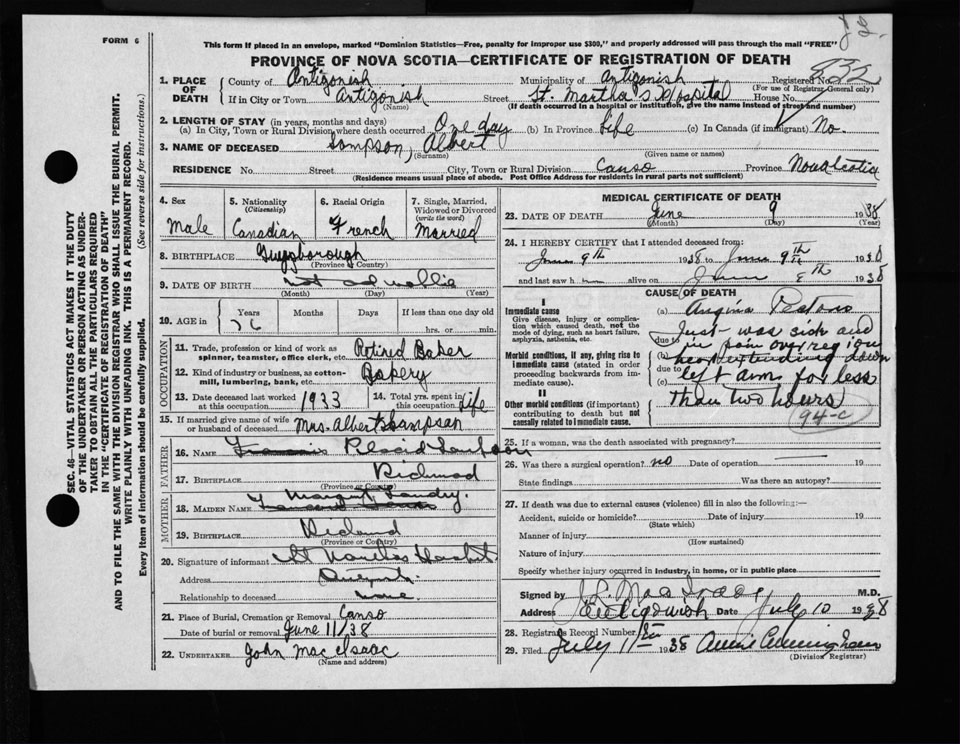 FORM 6
This form if placed in an envelope, marked "Dominion Statistics—Free, penalty for improper use $300," and properly addressed will pass through the mail "FREE"
PROVINCE OF NOVA SCOTIA—CERTIFICATE OF REGISTRATION OF DEATH
832
1. PLACE OF DEATH County of Antigonish Municipality of Antigonish Registered No. (For use of Registrar-General only)
If in City or Town Antigonish (Name) Street St. Martha's Hospital House No.
(If death occurred in a hospital or institution, give the name instead of street and number)
2. LENGTH OF STAY (in years, months and days)
(a) In City, Town or Rural Division where death occurred One day (b) In Province Life (c) In Canada (if immigrant) No.
3. NAME OF DECEASED Sampson, Albert
(Surname) (Given name or names)
RESIDENCE No. Street City, Town or Rural Division Canso Province Nova Scotia
(Residence means usual place of abode. Post Office Address for residents in rural parts not sufficient)
4. Sex Male
5. Nationality (Citizenship) Canadian
6. Racial Origin French
7. Single, Married, Widowed or Divorced (write the word) Married
8. BIRTHPLACE Guysborough
(Province or Country)
9. DATE OF BIRTH not
(Month) (Day) (Year)
10. AGE in Years Months Days If less than one day
76 hrs. or min.
OCCUPATION
11. Trade, profession or kind of work as spinner, teamster, office clerk, etc. Retired Baker
12. Kind of industry or business, as cotton-mill, lumbering, bank, etc. Bakery
13. Date deceased last worked at this occupation 1933
14. Total yrs. spent in this occupation Life
15. If married give name of wife or husband of deceased Mrs. Albert Sampson
FATHER
16. NAME Placid Sampson
17. BIRTHPLACE Richmond
(Province or Country)
MOTHER
18. MAIDEN NAME Margaret Landry
19. BIRTHPLACE
(Province or Country)
20. Signature of informant St Marthas Hospital
Address Antigonish
Relationship to deceased none
21. Place of Burial, Cremation or Removal Canso
Date of burial or removal June 11/38
22. UNDERTAKER John MacIsaac
(Name and address)
MEDICAL CERTIFICATE OF DEATH
23. DATE OF DEATH June 9 1938
(Month) (Day) (Year)
24. I HEREBY CERTIFY that I attended deceased from:
June 9th 1938 to June 9th 1938
and last saw h alive on June 9th 1938
CAUSE OF DEATH
I
Immediate cause
Give disease, injury or complication which caused death, not the mode of dying, such as heart failure, asphyxia, asthenia, etc.
Morbid conditions, if any, giving rise to immediate cause (stated in order proceeding backwards from immediate cause).
II
Other morbid conditions (if important) contributing to death but not causally related to immediate cause.
(a) Angina Pectoris
due to Just was sick and
(b) in pain over region
due to heart extending down
(c) left arms for less
than two hours
94-c
25. If a woman, was the death associated with pregnancy?
26. Was there a surgical operation? no Date of operation 19
State findings Was there an autopsy?
27. If death was due to external causes (violence) fill in also the following:—
Accident, suicide or homicide? Date of injury 19
(State which)
Manner of injury
(How sustained)
Nature of injury
Specify whether injury occurred in industry, in home, or in public place
Signed by M.D.
Address Antigonish Date July 10 1938
28. Registrars Record Number
29. Filed July 11 1938 Annie Cunningham
(Division Registrar)
SEC. 46—VITAL STATISTICS ACT MAKES IT THE DUTY
OF THE UNDERTAKER OR PERSON ACTING AS UNDERTAKER
TO OBTAIN ALL THE PARTICULARS REQUIRED
IN THE "CERTIFICATE OF REGISTRATION OF DEATH"
AND TO FILE THE SAME WITH THE DIVISION REGISTRAR WHO SHALL ISSUE THE BURIAL PERMIT.
WRITE PLAINLY WITH UNFADING INK. THIS IS A PERMANENT RECORD.
Every item of information should be carefully supplied. (See reverse side for instructions.)